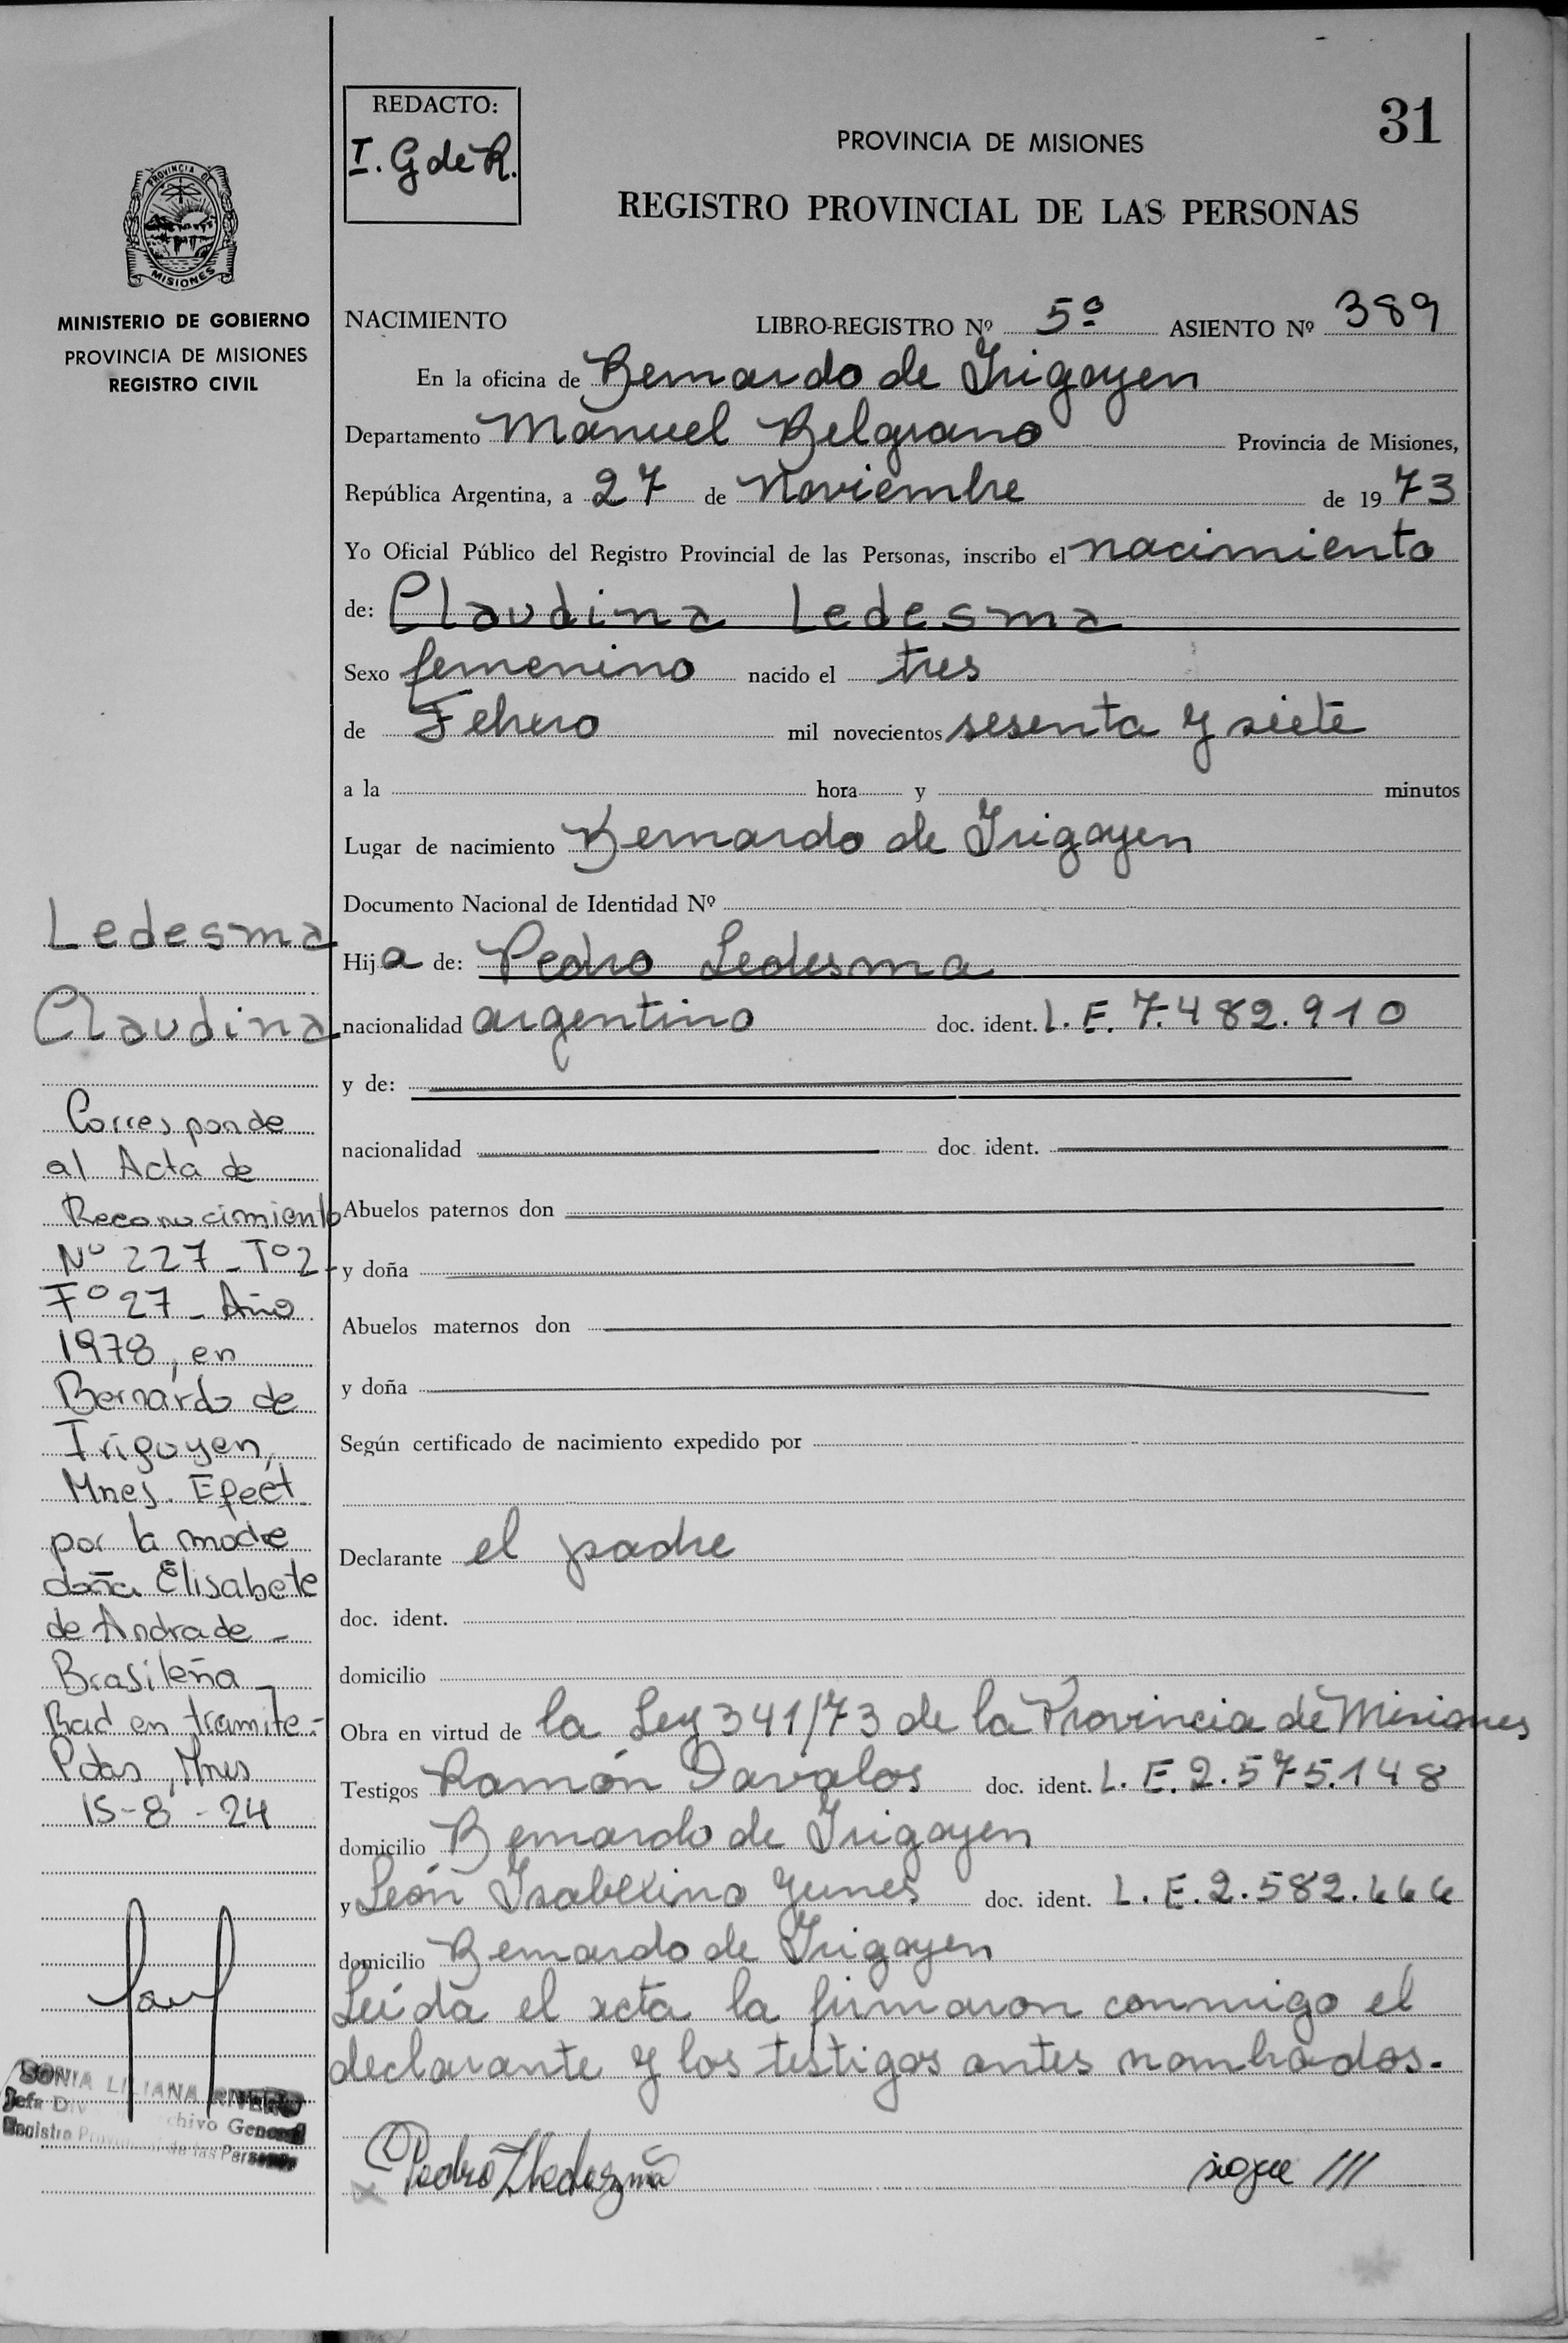 31
REDACTO:
I. G de R.
PROVINCIA DE MISIONES
REGISTRO PROVINCIAL DE LAS PERSONAS
PROVINCIA DE
MISIONES
MINISTERIO DE GOBIERNO
PROVINCIA DE MISIONES
REGISTRO CIVIL
NACIMIENTO LIBRO-REGISTRO Nº 5º ASIENTO Nº 389
En la oficina de Bernardo de Irigoyen
Departamento Manuel Belgrano Provincia de Misiones,
República Argentina, a 27 de Noviembre de 1973
Yo Oficial Público del Registro Provincial de las Personas, inscribo el nacimiento
de: Claudina Ledesma
Sexo femenino nacido el tres
de Febrero mil novecientos sesenta y siete
a la hora y minutos
Lugar de nacimiento Bernardo de Irigoyen
Documento Nacional de Identidad Nº
Hija de: Pedro Ledesma
nacionalidad argentino doc. ident. L. E. 7.482.910
y de:
nacionalidad doc. ident.
Abuelos paternos don
y doña
Abuelos maternos don
y doña
Según certificado de nacimiento expedido por
Declarante el padre
doc. ident.
domicilio
Obra en virtud de la Ley 341/73 de la Provincia de Misiones
Testigos Ramón Davalos doc. ident. L. E. 2.575.148
domicilio Bernardo de Irigoyen
y León Isabelino Yunes doc. ident. L. E. 2.582.666
domicilio Bernardo de Irigoyen
Leída el acta la firmaron conmigo el
declarante y los testigos antes nombrados.
Pedro Lledezma
sigue ///
Ledesma
Claudina
Corresponde
al Acta de
Reconocimiento
Nº 227 - Tº 2 -
Fº 27 - Año
1978, en
Bernardo de
Irigoyen,
Mnes. Efect.
por la madre
doña Elisabete
de Andrade -
Brasileña -
Rad en tramite -
Pdas, Mnes
15-8-24
SONIA LILIANA RIVERO
Jefa Div chivo General
Registro Provincial de las Personas